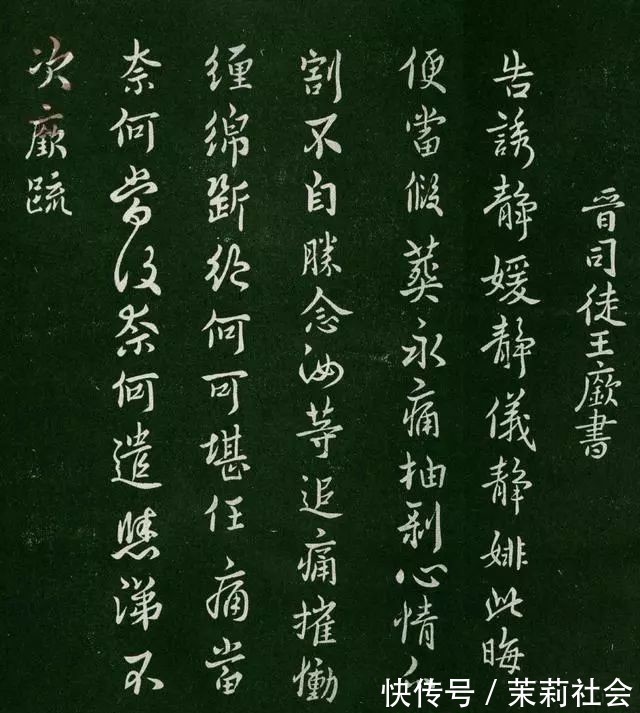 晉司徒王廞書
告誘靜媛靜儀靜此晦
便當假葬永痛抽剝心情
割不自勝念汝等追痛摧慟
纏綿斷絕何可堪任痛當
奈何當復奈何遣涕不
次廞疏
快传号 / 茉莉社会